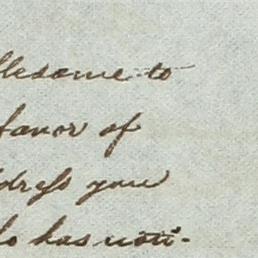 lesome to
favor of
dress you
has noti-